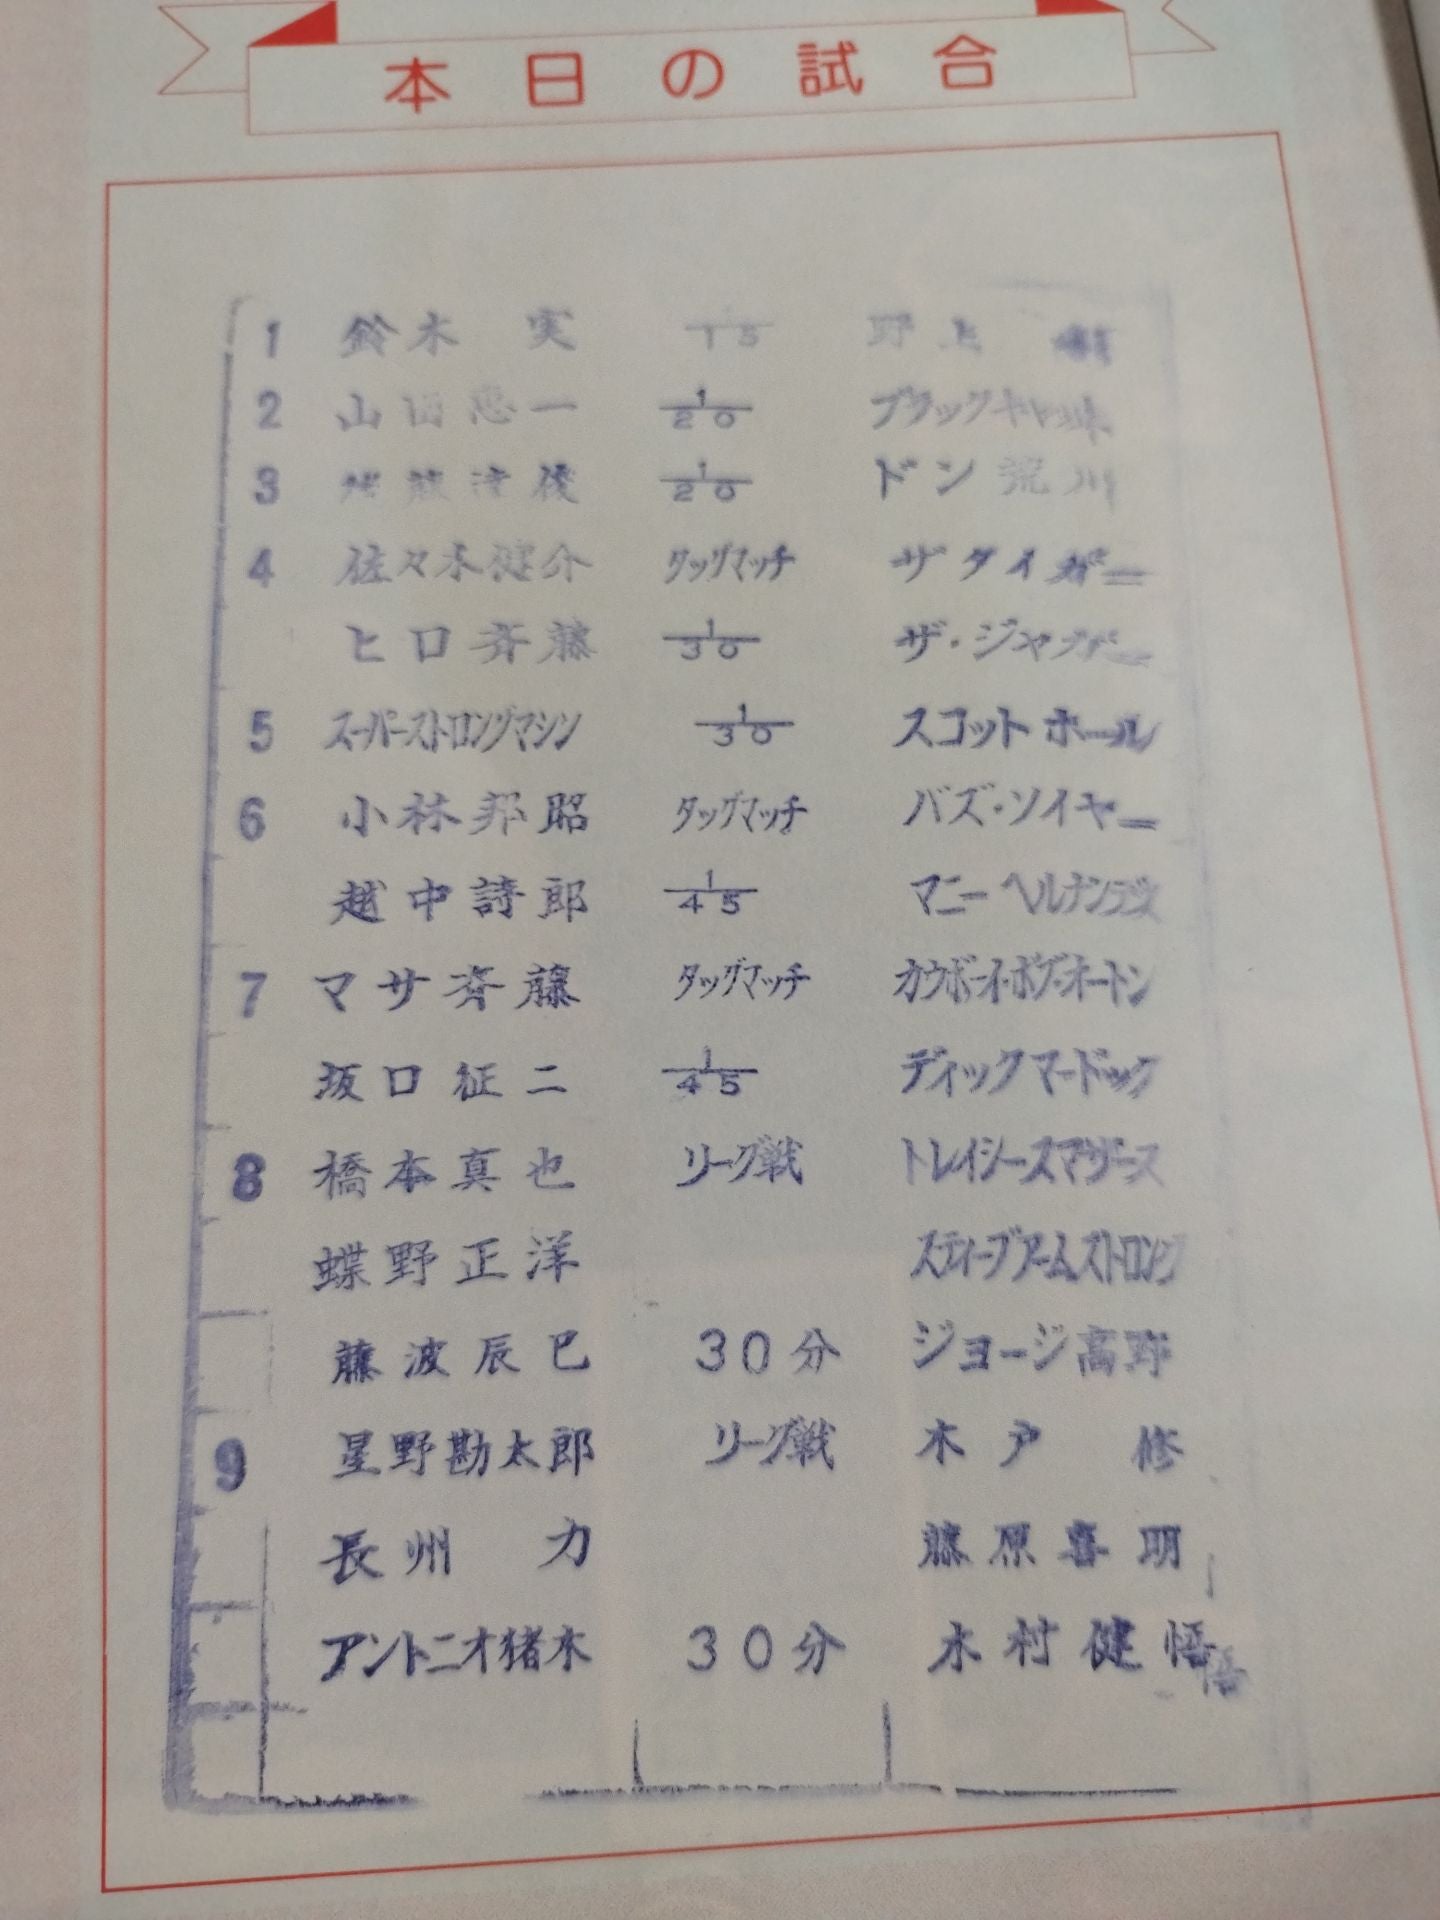 本日の試合
1 鈴木 実 15 野上
2 山田恵一 1/20 ブラックキャット
3 後 1/20 ドン荒川
4 佐々木健介 タッグマッチ ザタイガー
ヒロ斉藤 1/30 ザ・ジャガー
5 スーパーストロングマシン 1/30 スコットホール
6 小林邦昭 タッグマッチ バズ・ソイヤー
越中詩郎 1/45 マニーヘルナンデス
7 マサ斉藤 タッグマッチ カウボーイ・ボブ・オートン
坂口征二 1/45 ディックマードック
8 橋本真也 リーグ戦 トレイシースマザース
蝶野正洋 スティーブアームストロング
藤波辰巳 30分 ジョージ高野
9 星野勘太郎 リーグ戦 木戸 修
長州 力 藤原喜明
アントニオ猪木 30分 木村健悟